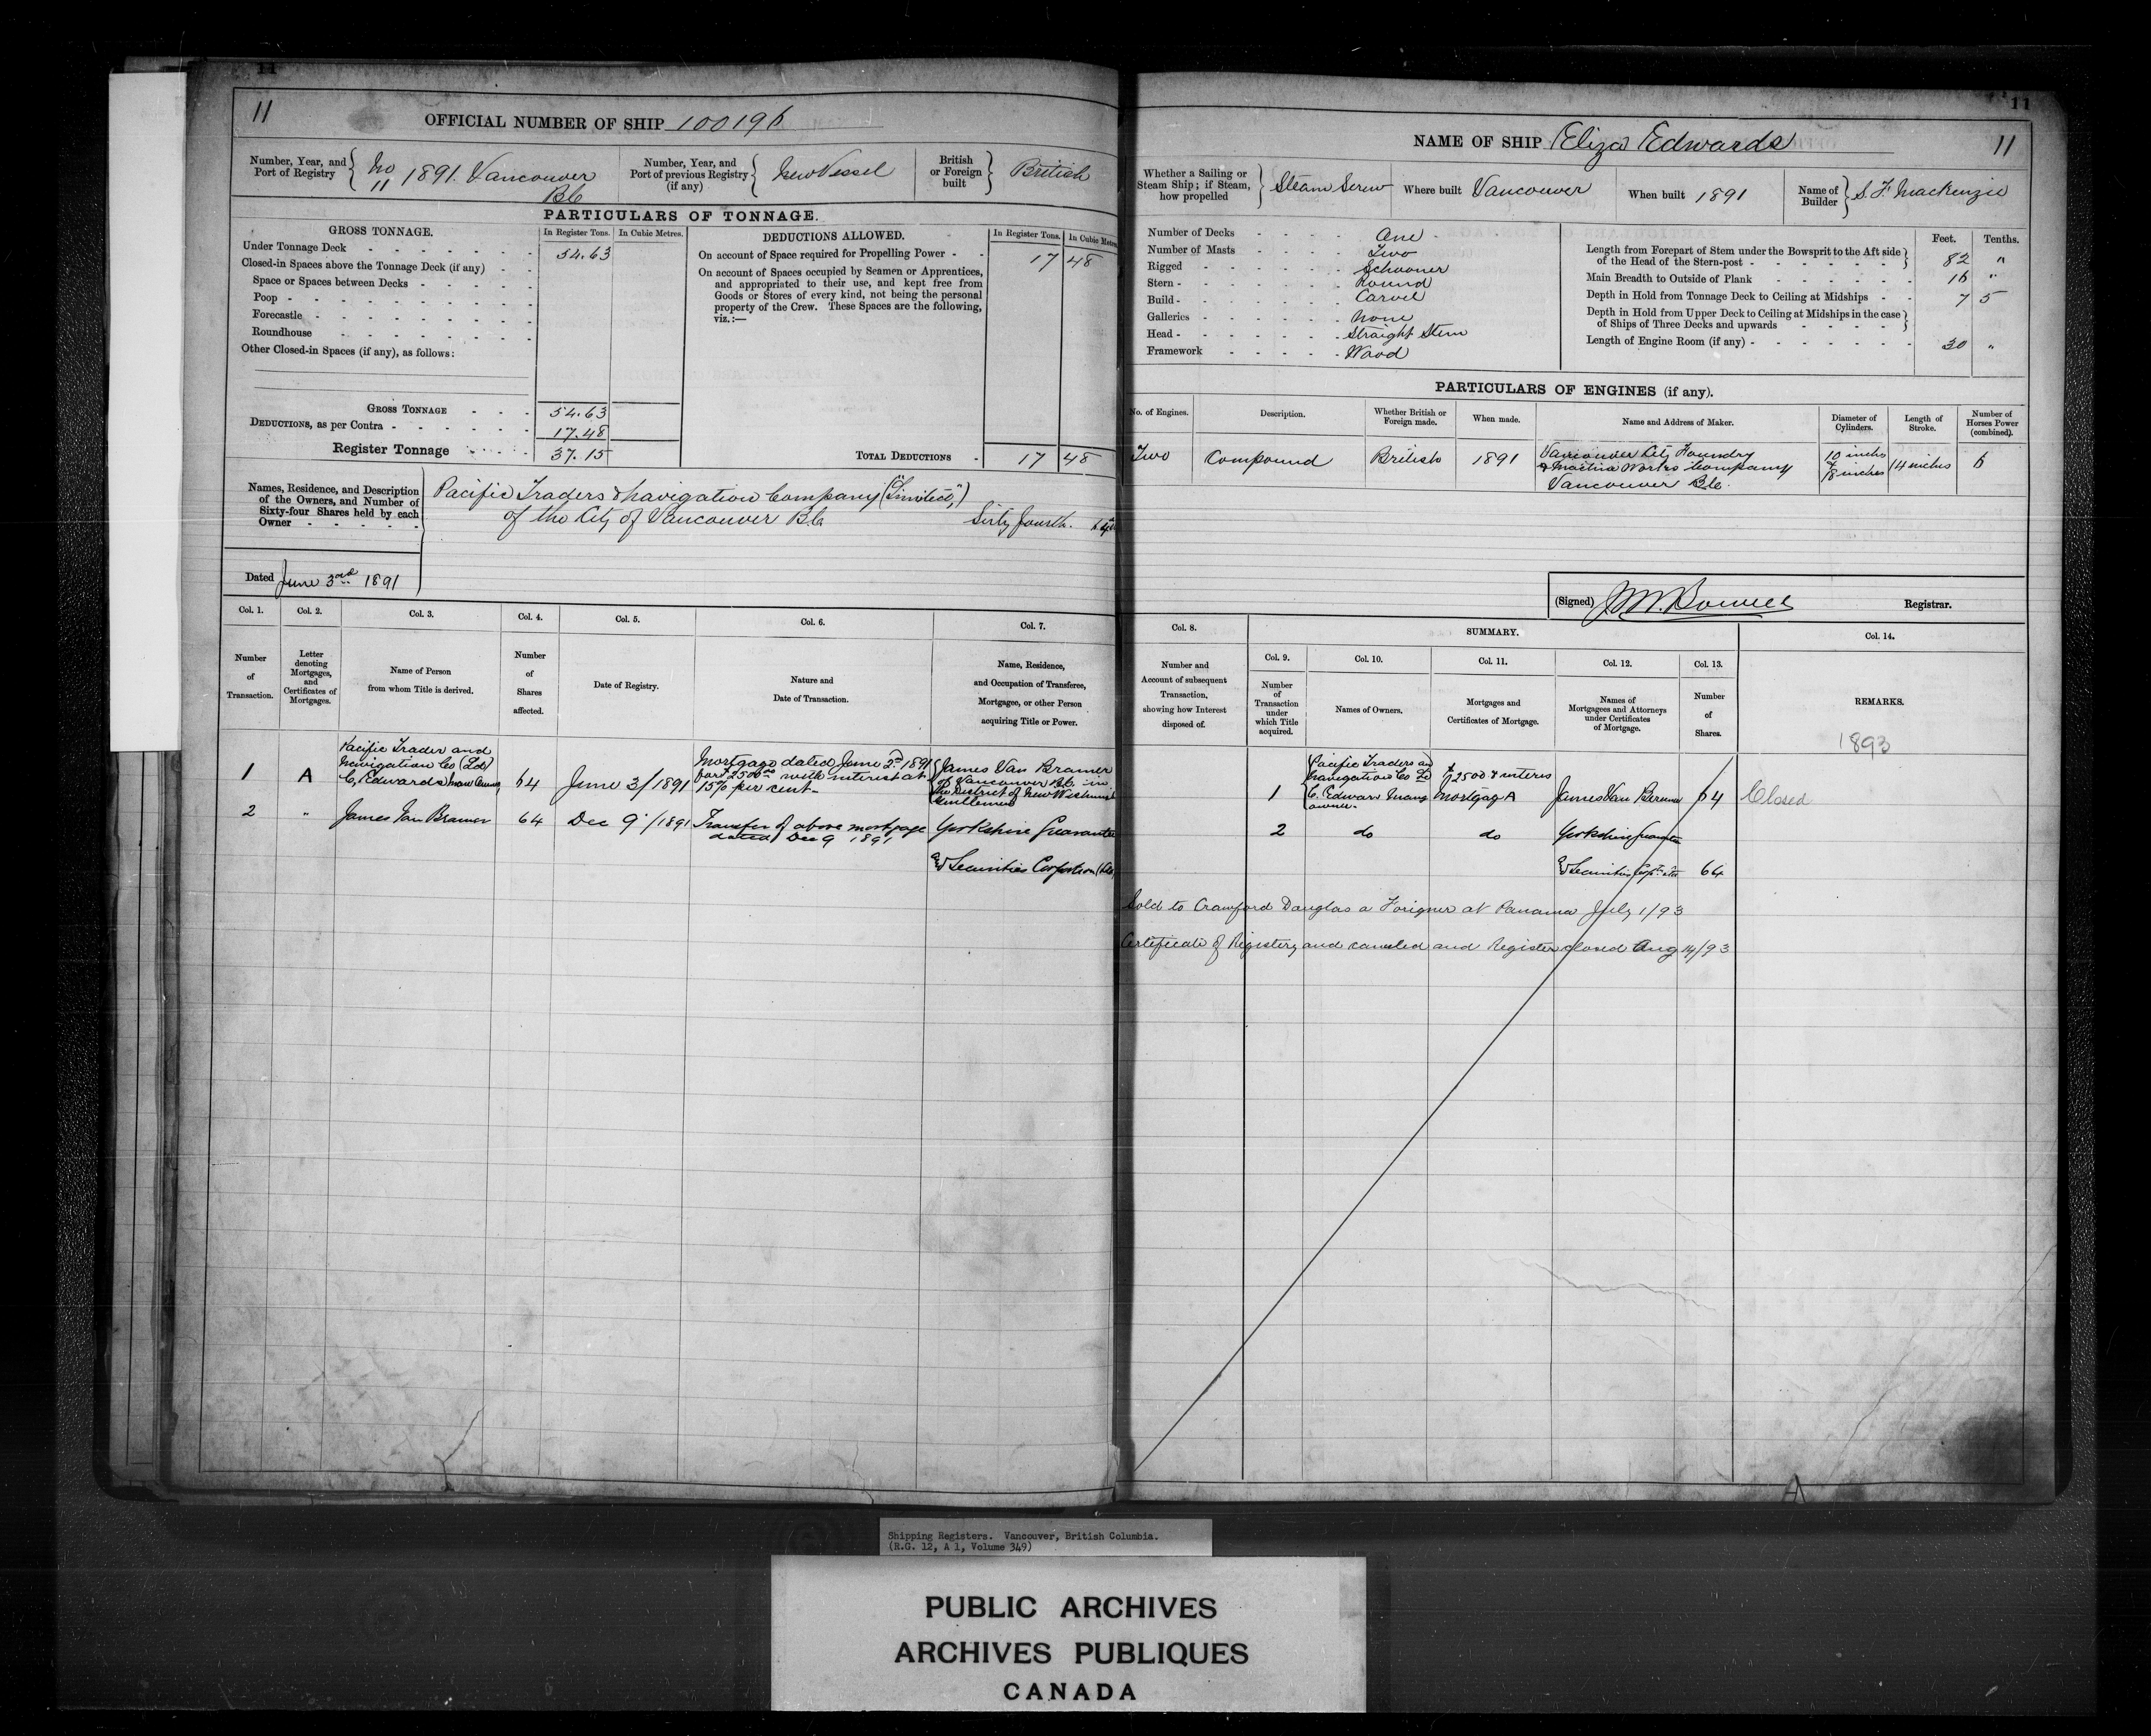 11
11
OFFICIAL NUMBER OF SHIP 100196
Number, Year, and Port of Registry No 11 1891. Vancouver Bc
Number, Year, and Port of previous Registry (if any) New Vessel
British or Foreign built British
PARTICULARS OF TONNAGE.
GROSS TONNAGE. In Register Tons. In Cubic Metres.
Under Tonnage Deck 54.63
Closed-in Spaces above the Tonnage Deck (if any)
Space or Spaces between Decks
Poop
Forecastle
Roundhouse
Other Closed-in Spaces (if any), as follows:
GROSS TONNAGE 54.63
DEDUCTIONS, as per Contra 17.48
Register Tonnage 37.15
DEDUCTIONS ALLOWED. In Register Tons. In Cubic Metres
On account of Space required for Propelling Power 17 48
On account of Spaces occupied by Seamen or Apprentices,
and appropriated to their use, and kept free from
Goods or Stores of every kind, not being the personal
property of the Crew. These Spaces are the following,
viz.:—
TOTAL DEDUCTIONS 17 48
Names, Residence, and Description
of the Owners, and Number of
Sixty-four Shares held by each
Owner
Pacific Traders & Navigation Company ("Limited",)
of the City of Vancouver Bc Sixty fourth. 64
Dated June 3rd 1891
Col. 1. Col. 2. Col. 3. Col. 4. Col. 5. Col. 6. Col. 7.
Number of Transaction.
Letter denoting Mortgages, and Certificates of Mortgages.
Name of Person from whom Title is derived.
Number of Shares affected.
Date of Registry.
Nature and Date of Transaction.
Name, Residence, and Occupation of Transferee, Mortgagee, or other Person acquiring Title or Power.
1 A Pacific Trader and Navigation Co (Ld) C, Edwards 64 June 3/1891 Mortgage dated June 2nd 1891 for $2500.00 with interest at 15% per cent- James Van Bramer of Vancouver Bc. in the District of New Westminst
2 " James Van Bramer 64 Dec 9/1891 Transfer of above mortgage dated Dec 9 1891 Yorkshire Guarantee & Securities Corporation (Ld)
11
11
NAME OF SHIP Eliza Edwards
Whether a Sailing or Steam Ship; if Steam, how propelled Steam Screw
Where built Vancouver
When built 1891
Name of Builder S. F. Mackenzie
Number of Decks One
Number of Masts Two
Rigged Schooner
Stern Round
Build Carvel
Galleries None
Head Straight Stem
Framework Wood
Feet. Tenths.
Length from Forepart of Stem under the Bowsprit to the Aft side of the Head of the Stern-post 82 "
Main Breadth to Outside of Plank 16 "
Depth in Hold from Tonnage Deck to Ceiling at Midships 7 5
Depth in Hold from Upper Deck to Ceiling at Midships in the case of Ships of Three Decks and upwards
Length of Engine Room (if any) 30 "
PARTICULARS OF ENGINES (if any).
No. of Engines. Description. Whether British or Foreign made. When made. Name and Address of Maker. Diameter of Cylinders. Length of Stroke. Number of Horses Power (combined).
Two Compound British 1891 Vancouver City Foundry & Machine Works Company Vancouver Bc. 10 inches & 18 inches 14 inches 6
(Signed) Registrar.
Col. 8. SUMMARY. Col. 14.
Col. 9. Col. 10. Col. 11. Col. 12. Col. 13.
Number and Account of subsequent Transaction, showing how Interest disposed of.
Number of Transaction under which Title acquired.
Names of Owners.
Mortgages and Certificates of Mortgage.
Names of Mortgagees and Attorneys under Certificates of Mortgage.
Number of Shares.
REMARKS.
1893
1 Pacific Traders and Navigation Co Ld C. Edwar Manag owner. $2500 & interes Mortgag A James Van Bramer 64 Closed
2 do do Yorkshire Guarantee
& Securities Corpn 64
Sold to Crawford Douglas a Forigner at Panama July 1/93
Certificate of Registery and canceled and Register closed Aug 14/93
Shipping Registers. Vancouver, British Columbia.
(R.G. 12, A 1, Volume 349)
PUBLIC ARCHIVES
ARCHIVES PUBLIQUES
CANADA